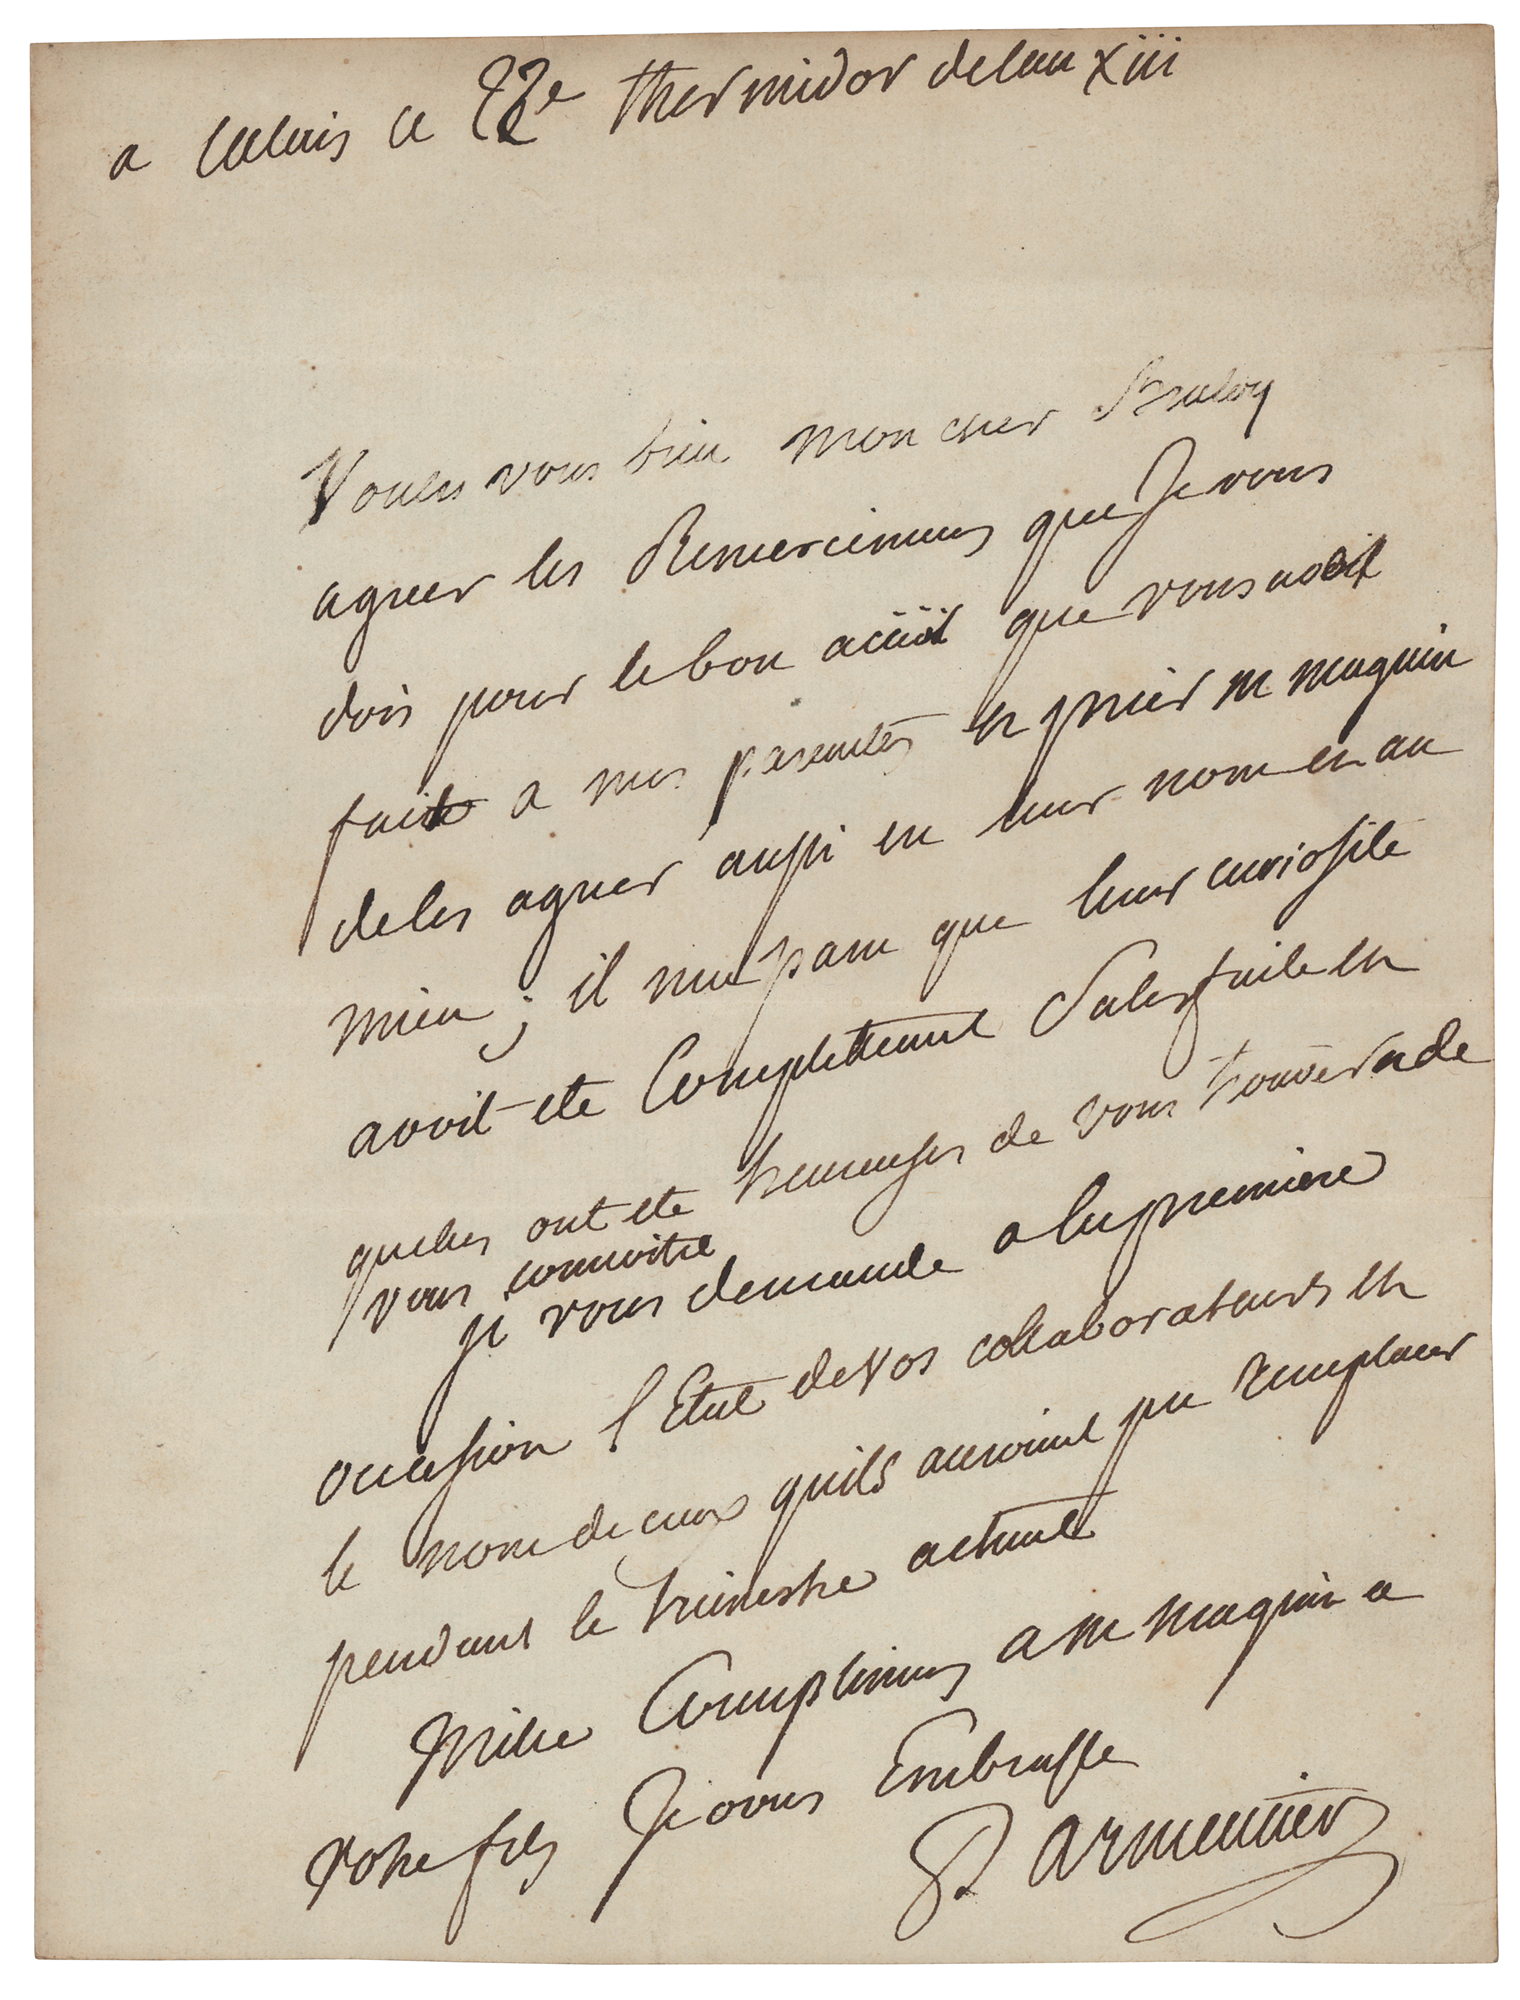 a Calais ce 22e thermidor de lan xiii
Voules vous bien mon cher
agreer les Remercimens que Je vous
dois pour le bon que vous
fait a mes parentes et prier m maquin
de les agreer aussi en leur nom et au
mien ; il me paru que leur curiosité
avoit ete Completement Satisfaite et
quelles ont ete heureuses de vous trouver de
vous connoitre
je vous demande a la premiere
occasion l'Etat de vos collaborateurs et
le nom de ceux quils auroient pu remplacer
pendant le trimestre actuel
Mille Complimens a m maquin a
votre fils Je vous Embrasse
Parmentier